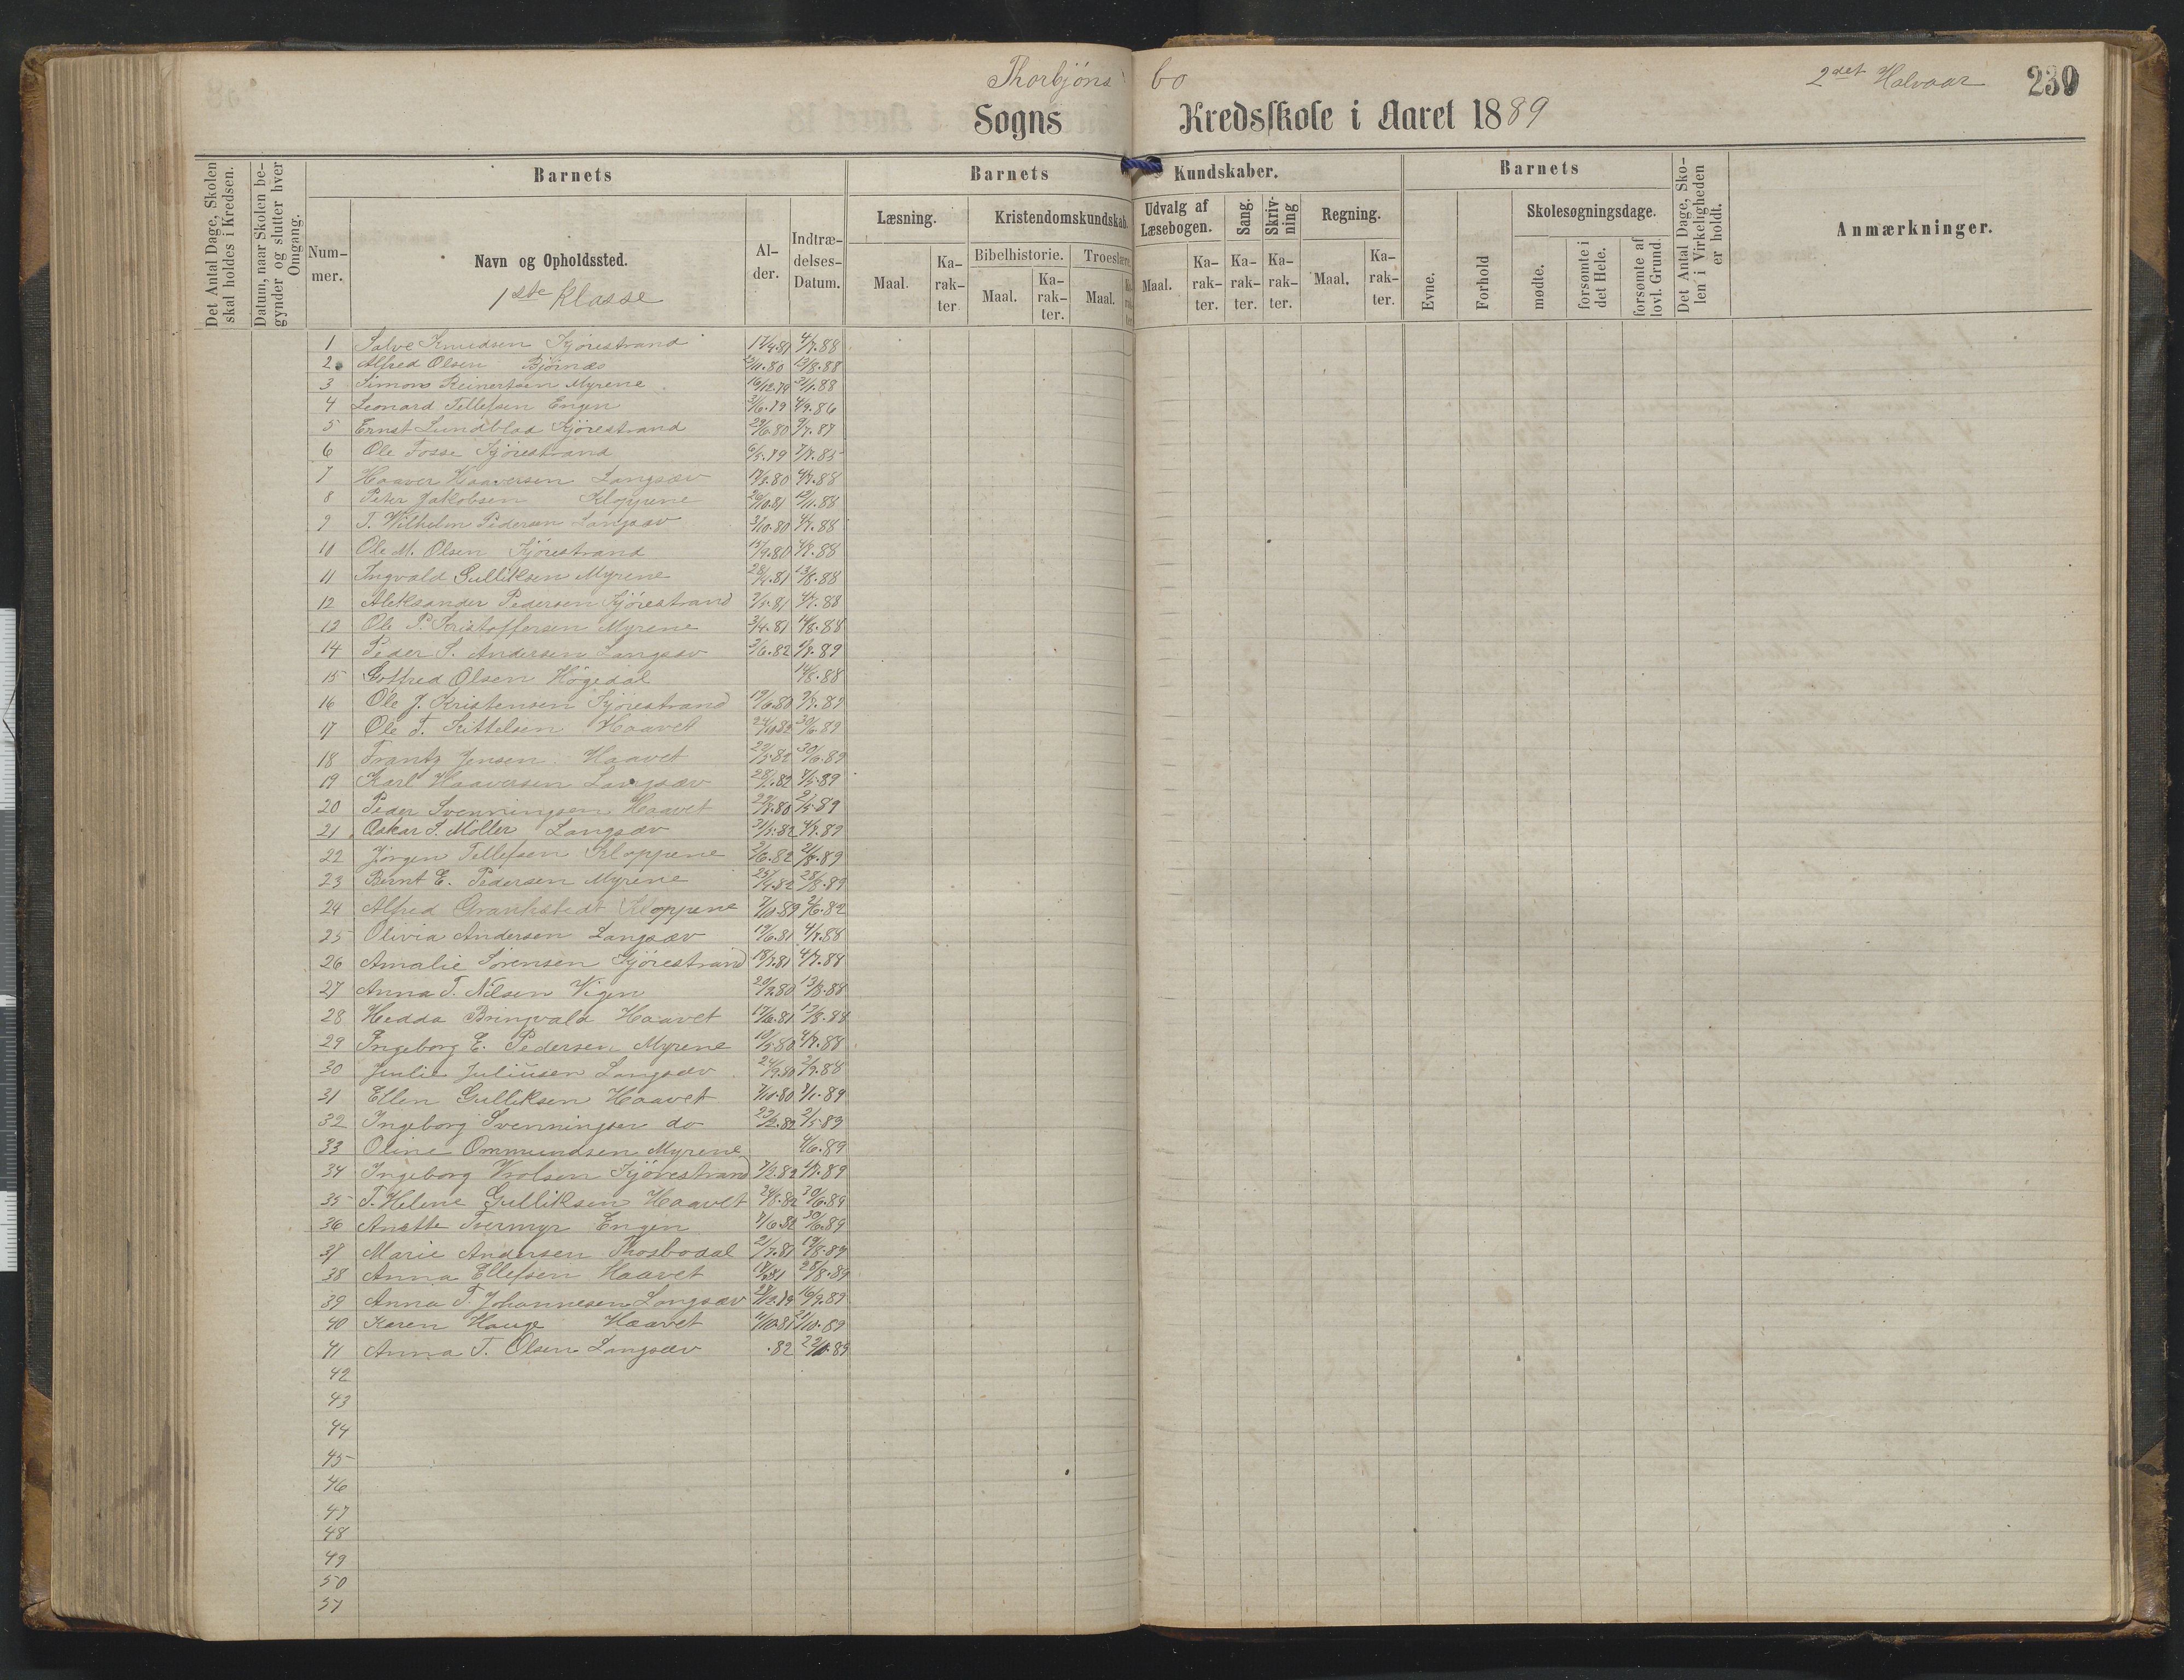 Thorbjöns bo
2det Halvaar 230
Sogns Kredsskole i Aaret 1889
Det Antal Dage, Skolen skal holdes i Kredsen.
Datum, naar Skolen be-gynder og slutter hver Omgang.
Barnets
Num-mer.
Navn og Opholdssted.
1ste Klasse
Al-der.
Indtræ-delses-Datum.
Barnets Kundskaber.
Læsning.
Maal.
Ka-rak-ter
Kristendomskundskab.
Bibelhistorie.
Maal.
Ka-rak-ter.
Troeslære.
Maal.
Udvalg af Læsebogen.
Maal.
Ka-rak-ter.
Sang.
Ka-rak-ter.
Skriv-ning
Ka-rak-ter.
Regning.
Maal.
Ka-rak-ter.
Barnets
Evne.
Forhold
Skolesøgningsdage.
mødte.
forsømte i det Hele.
forsømte af lovl. Grund.
Det Antal Dage, Sko-len i Virkeligheden er holdt.
Anmærkninger.
1 Salve Knudsen Kjörestrand 17/4.81 4/7.88
2 Alfred Olsen Björnæs 23/11.80 13/8.88
3 Simon Reinertsen Myrene 16/12.79 2/1.88
4 Leonard Tellefsen Engen 3/6.79 4/9.86
5 Ernst Lundblad Kjörestrand 29/6.80 9/7.87
6 Ole Fosse Kjörestrand 6/5.79 7/7.85
7 Haaver Haaversen Langsæv 17/3.80 4/7.88
8 Peter Jakobsen Kloppene 26/10.81 12/11.88
9 T. Wilhelm Pedersen Langsæv 3/10.80 4/7.88
10 Ole M. Olsen Kjörestrand 15/9.80 4/7.88
11 Ingvald Gulliksen Myrene 28/4.81 13/8.88
12 Aleksander Pedersen Kjörestrand 2/5.81 4/7.88
13 Ole P. Kristoffersen Myrene 3/4.81 14/8.88
14 Peder S. Andersen Langsæv 3/6.82 1/7.89
15 Gotfred Olsen Högedal 14/8.88
16 Ole J. Kristensen Kjörestrand 19/6.80 2/7.89
17 Ole T. Kittelsen Haavet 24/10.82 30/6.89
18 Frantz Jensen Haavet 22/5.82 30/6.89
19 Karl Haaversen Langsæv 28/1.82 7/5.89
20 Peder Svenningsen Haavet 29/7.80 2/5.89
21 Oskar S. Möller Langsæv 31/5.82 4/7.89
22 Jörgen Tellefsen Kloppene 2/6.82 21/8.89
23 Bernt E. Pedersen Myrene 25/4.82 28/8.89
24 Alfred Grankstedt Kloppene 7/10.89 2/6.82
25 Olivia Andersen Langsæv 19/6.81 4/7.88
26 Amalie Sörensen Kjörestrand 18/7.81 4/7.88
27 Anna T. Nilsen Vigen 20/3.80 13/8.88
28 Hedda Bringvald Haavet 17/6.81 13/8.88
29 Ingeborg E. Pedersen Myrene 10/5.80 4/7.88
30 Julie Juliusen Langsæv 24/9.80 2/7.88
31 Ellen Gulliksen Haavet 7/10.80 7/1.89
32 Ingeborg Svenningsen do 23/2.82 2/5.89
33 Oline Ommundsen Myrene 4/6.89
34 Ingeborg Vrolsen Kjörestrand 7/2.82 4/7.89
35 T. Helene Gulliksen Haavet 24/8.82 30/6.89
36 Anette Tvermyr Engen 7/6.82 30/6.89
37 Marie Andersen Thosbodal 21/7.81 19/8.89
38 Anna Ellefsen Haavet 28/8.89
39 Anna T. Johannesen Langsæv 28/12.79 16/9.89
40 Karen Hauge Haavet 4/10.81 21/10.89
41 Anna T. Olsen Langsæv .82 22/10.89
42
43
44
45
46
47
48
49
50
51